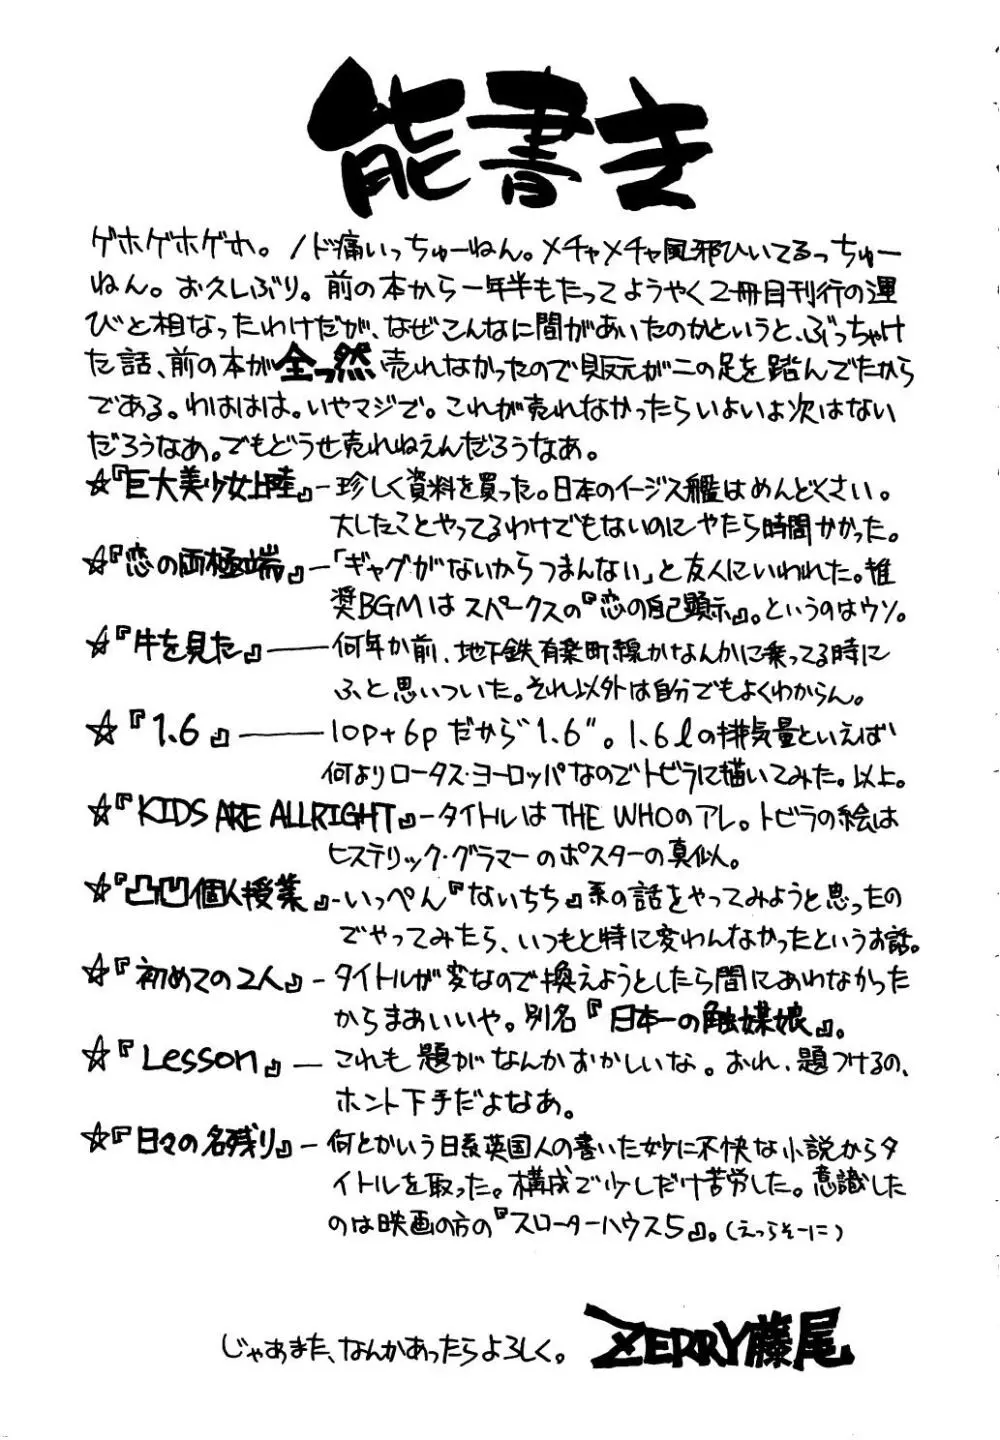 能書き
ゲホゲホゲホ。ノド痛いっちゅーねん。メチャメチャ風邪ひいてるっちゅー
ねん。お久しぶり。前の本から一年半もたってようやく2冊目刊行の運
びと相なったわけだが、なぜこんなに間があいたのかというと、ぶっちゃけ
た話、前の本が全っ然売れなかったので版元が二の足を踏んでたから
である。わははは。いやマジで。これが売れなかったらいよいよ次はない
だろうなあ。でもどうせ売れねえんだろうなあ。
☆『巨大美少女上陸』-珍しく資料を買った。日本のイージス艦はめんどくさい。
大したことやってるわけでもないのにやたら時間かかった。
☆『恋の両極端』-「ギャグがないからつまんない」と友人にいわれた。推
奨BGMはスパークスの『恋の自己顕示』。というのはウソ。
☆『牛を見た』――何年か前、地下鉄有楽町線かなんかに乗ってる時に
ふと思いついた。それ以外は自分でもよくわからん。
☆『1.6』――10p+6pだから"1.6"。1.6lの排気量といえば
何よりロータス・ヨーロッパなのでトビラに描いてみた。以上。
☆『KIDS ARE ALLRIGHT』-タイトルはTHE WHOのアレ。トビラの絵は
ヒステリック・グラマーのポスターの真似。
☆『凸凹個人授業』-いっぺん『ないちち』系の話をやってみようと思ったの
でやってみたら、いつもと特に変わんなかったというお話。
☆『初めての2人』-タイトルが変なので換えようとしたら間にあわなかった
からまあいいや。別名『日本一の触媒娘』。
☆『Lesson』―これも題がなんかおかしいな。おれ、題つけるの、
ホント下手だよなあ。
☆『日々の名残り』-何とかいう日系英国人の書いた妙に不快な小説からタ
イトルを取った。構成で少しだけ苦労した。意識した
のは映画の方の『スローターハウス5』。(えっらそーに)
じゃあまた、なんかあったらよろしく。 ZERRY藤尾